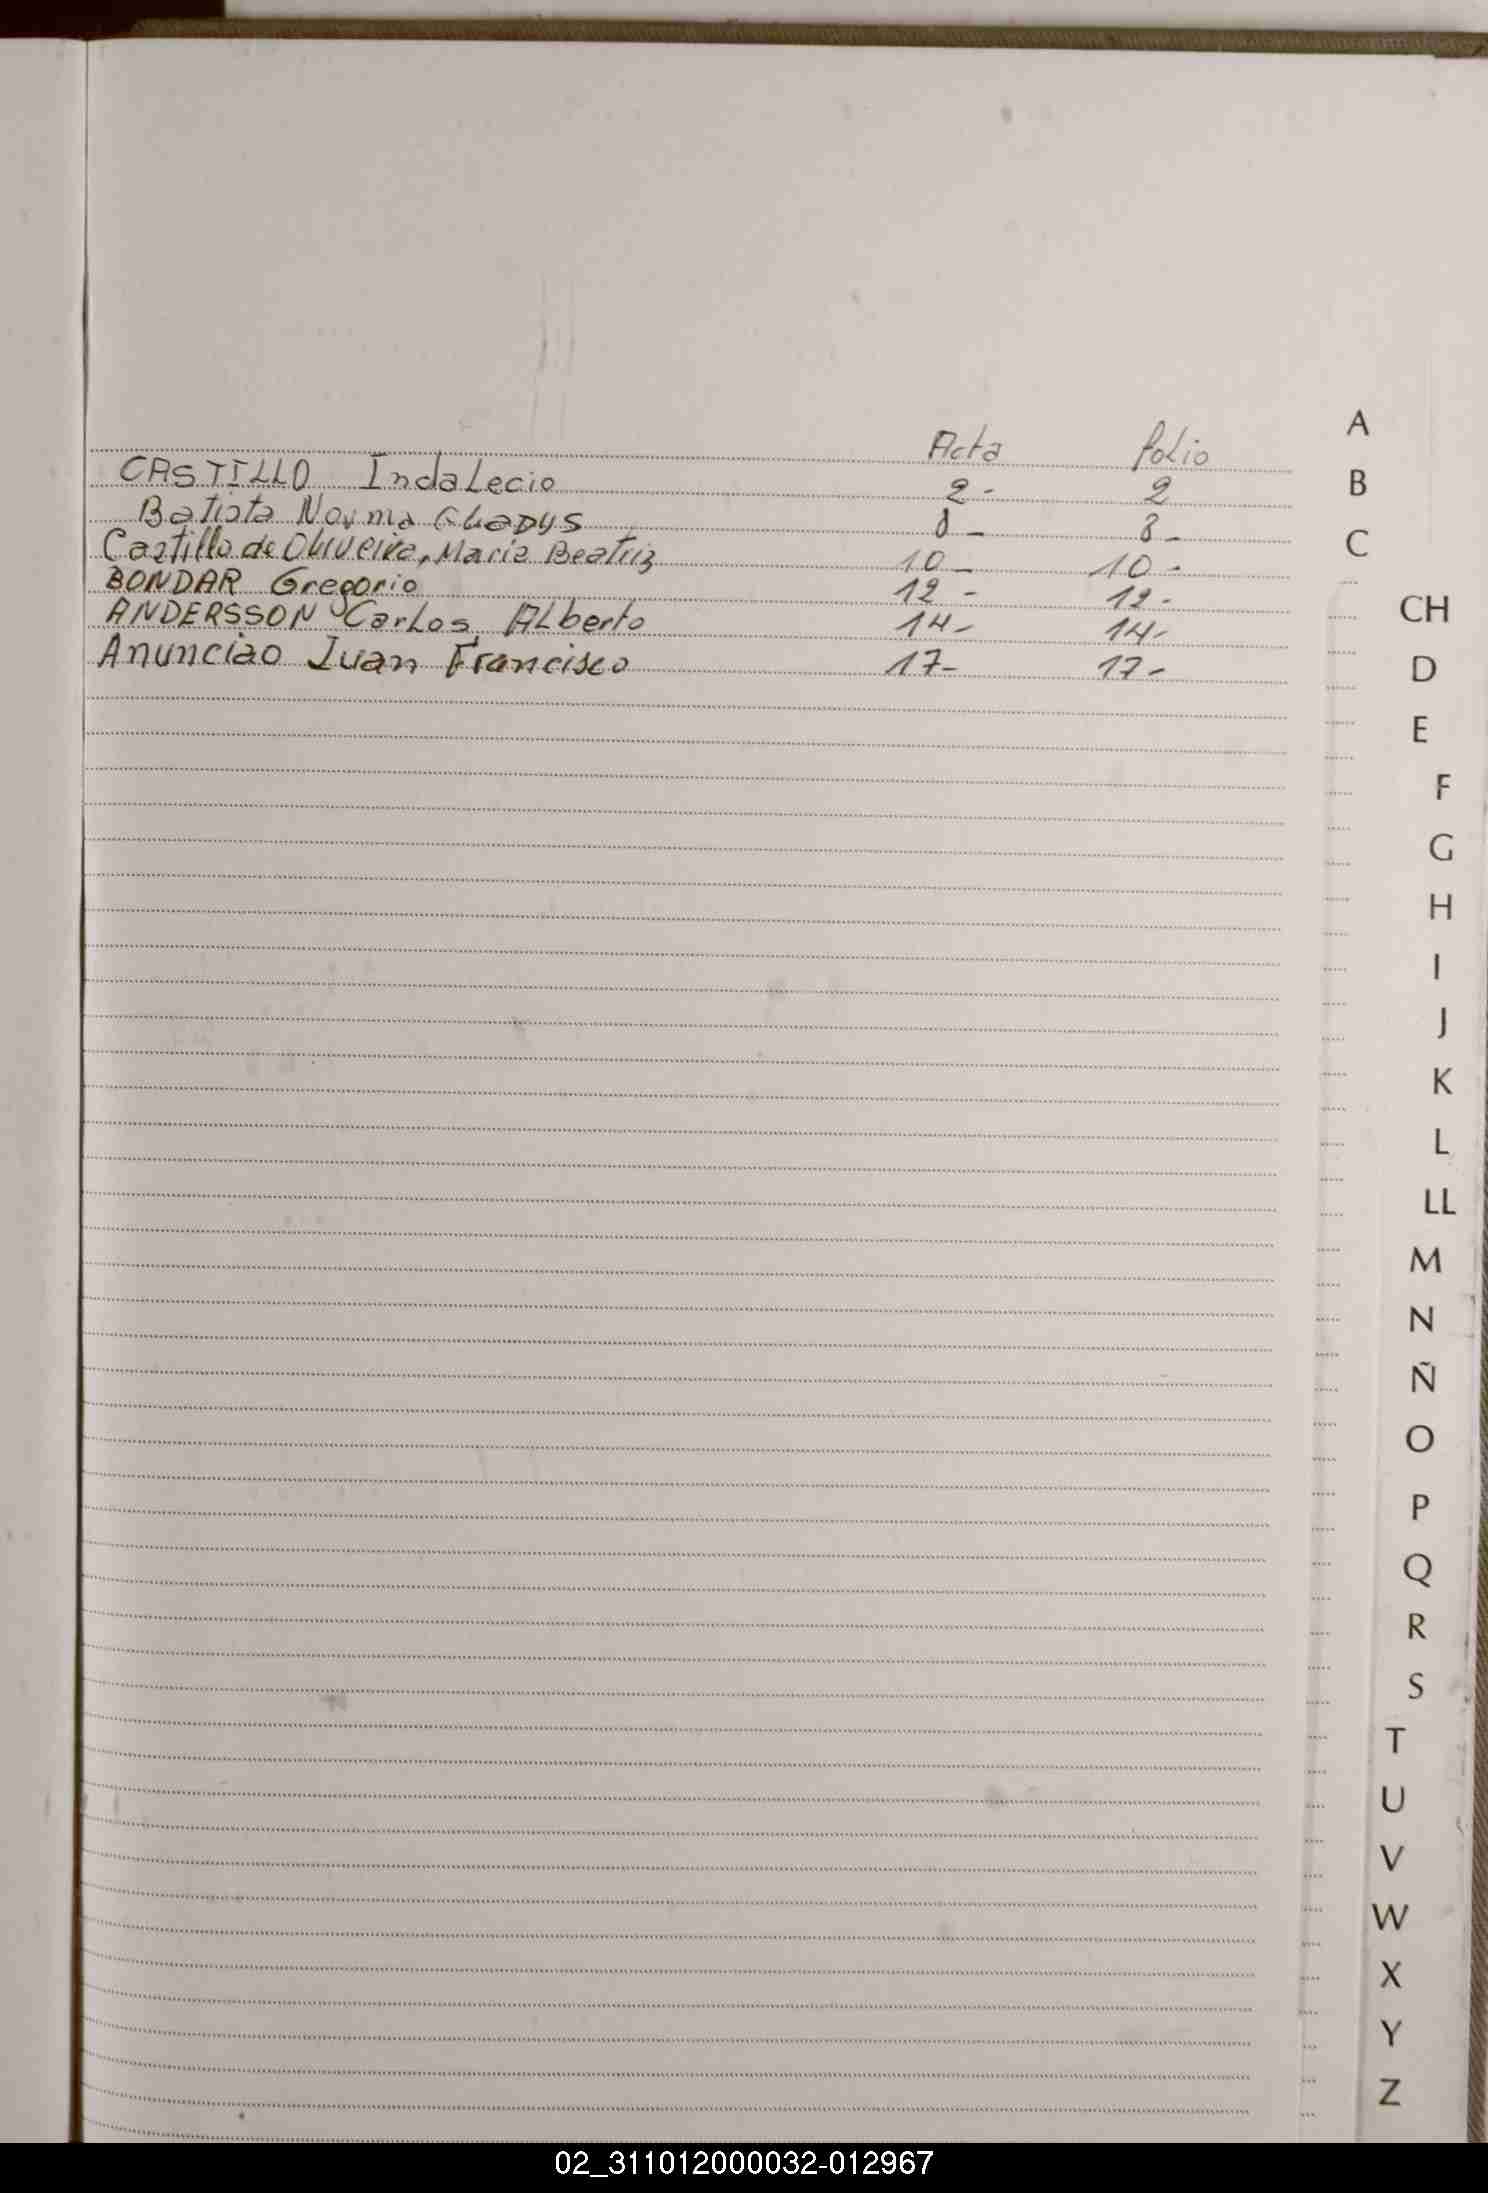 Acta folio
CASTILLO Indalecio 2 - 2
Batista Norma GLaDYS 8 - 8 -
Castillo de Oliveira, Maria Beatriz 10 - 10 -
BONDAR Gregorio 12 - 12 -
ANDERSSON Carlos ALberto 14 - 14 -
Anunciao Juan Francisco 17 - 17 -
A
B
C
CH
D
E
F
G
H
I
J
K
L
LL
M
N
Ñ
O
P
Q
R
S
T
U
V
W
X
Y
Z
02_311012000032-012967